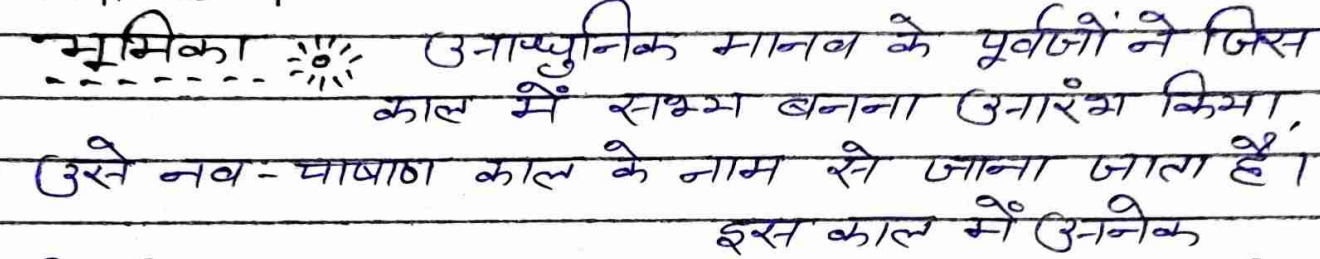 भूमिका आधुनिक मानव के पूर्वजों ने जिस
काल में सभ्य बनना आरंभ किया,
उसे नव-पाषाण काल के नाम से जाना जाता है।
इस काल में अनेक